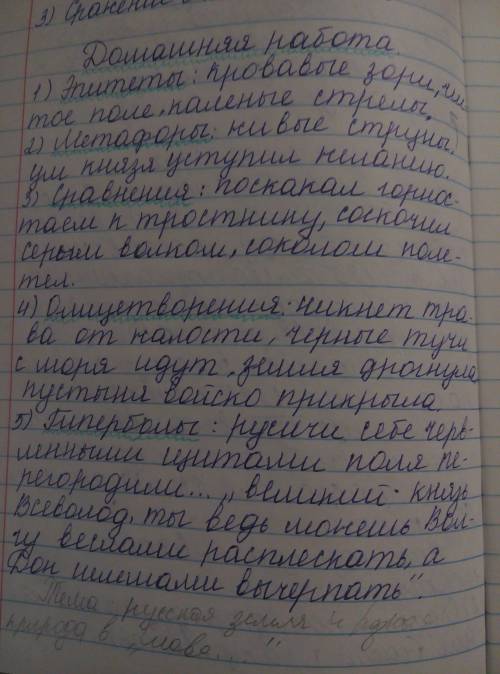 3) Сравнения
Домашняя работа.
1) Эпитеты: кровавые зори, чис-
тое поле, каленые стрелы.
2) Метафоры: живые струны,
ум князя уступил желанию.
3) Сравнения: поскакал горнос-
таем к тростнику, соскочил
серым волком, соколом поле-
тел.
4) Олицетворения: никнет тра-
ва от жалости, черные тучи
с моря идут, земля дрогнула,
пустыня войско прикрыла.
5) Гиперболы: русичи себе черв-
ленными щитами поля пе-
регородили... „великий князь
Всеволод, ты ведь можешь Вол-
гу веслами расплескать, а
Дон шлемами вычерпать".
"Тема русская земля и
природа в „Слове..."